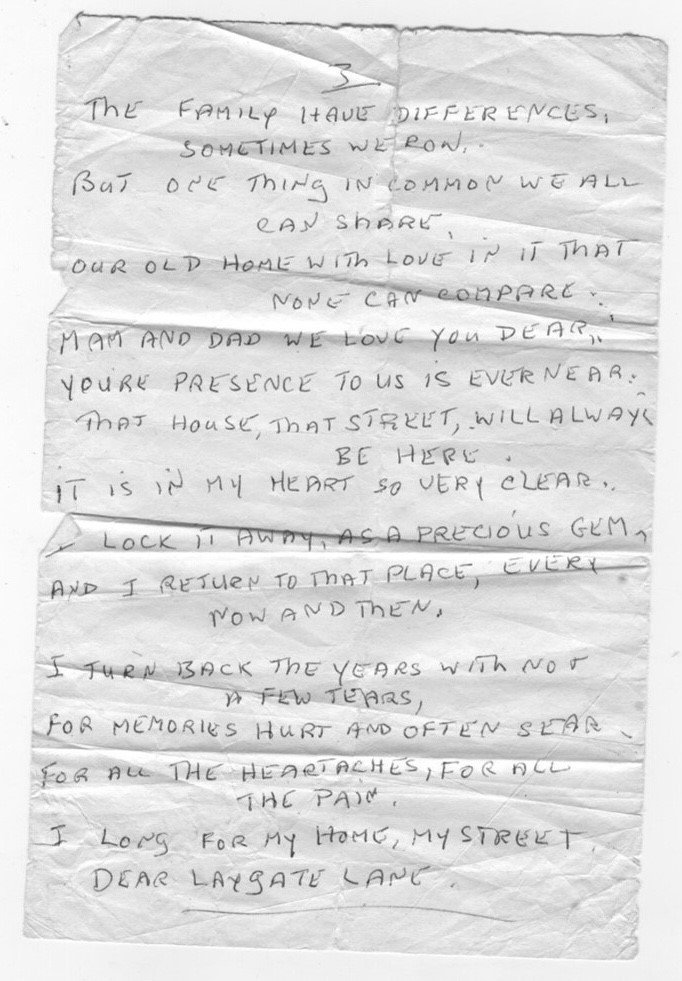 3
THE FAMILY HAVE DIFFERENCES,
SOMETIMES WE ROW,.
BUT ONE THING IN COMMON WE ALL
CAN SHARE,
OUR OLD HOME WITH LOVE IN IT THAT
NONE CAN COMPARE.
MAM AND DAD WE LOVE YOU DEAR,
YOURE PRESENCE TO US IS EVER NEAR.
THAT HOUSE, THAT STREET, WILL ALWAYS
BE HERE.
IT IS IN MY HEART SO VERY CLEAR..
I LOCK IT AWAY, AS A PRECIOUS GEM,
AND I RETURN TO THAT PLACE, EVERY
NOW AND THEN.
I TURN BACK THE YEARS WITH NOT
A FEW TEARS,
FOR MEMORIES HURT AND OFTEN SEAR,
FOR ALL THE HEARTACHES, FOR ALL
THE PAIN.
I LONG FOR MY HOME, MY STREET,
DEAR LAYGATE LANE.